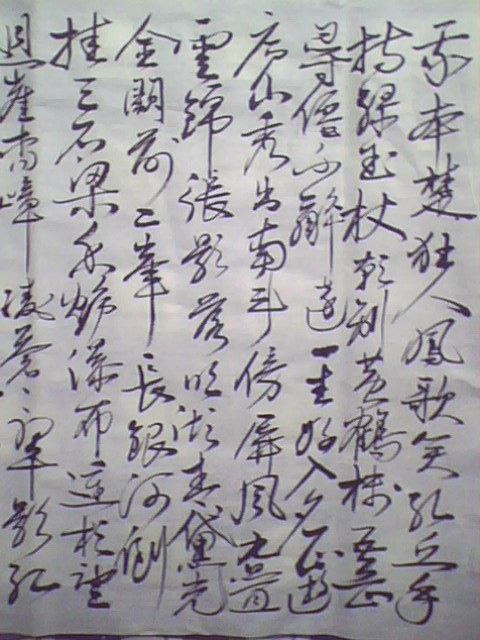 我本楚狂人鳳歌笑孔丘手
持綠玉杖朝別黃鶴樓五岳
尋僊不辭遠一生好入名山遊
庐山秀出南斗傍屏風九疊
雲錦張影落明湖青黛光
金闕前二峯長銀河倒
挂三石梁香爐瀑布遥相望
迴崖沓嶂凌蒼々翠影紅